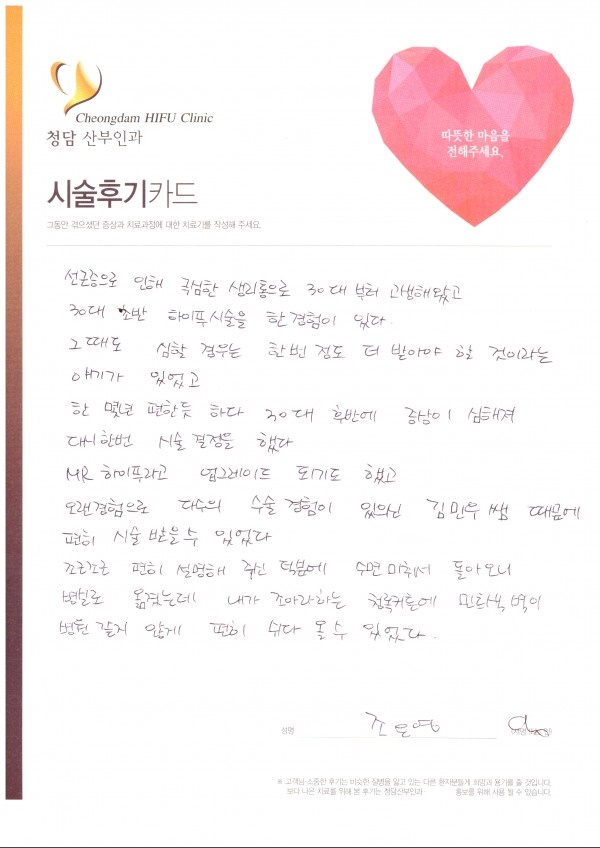 Cheongdam HIFU Clinic
청담 산부인과
따뜻한 마음을
전해주세요.
시술후기카드
그동안 겪으셨던 증상과 치료과정에 대한 치료기를 작성해 주세요.
선근증으로 인해 극심한 생리통으로 30대 부터 고생해왔고
30대 초반 하이푸시술을 한 경험이 있다.
그때도 심할 경우는 한번 정도 더 받아야 할 것이라는
얘기가 있었고
한 몇년 편한듯 하다 30대 후반에 증상이 심해져
다시한번 시술 결정을 했다
MR 하이푸라고 업그레이드 되기도 했고
오랜경험으로 다수의 수술 경험이 있으신 김민우 쌤 때문에
편히 시술 받을수 있었다
조근조근 편히 설명해 주신 덕분에 수면 마취서 돌아오니
병실로 옮겼는데 내가 조아라하는 청록커튼에 민화색 벽이
병원 같지 않게 편히 쉬다 올수 있었다.
성명 조은영
※ 고객님 소중한 후기는 비슷한 질병을 앓고 있는 다른 환자분들께 희망과 용기를 줄 것입니다.
보다 나은 치료를 위해 본 후기는 청담산부인과 홍보를 위해 사용 될 수 있습니다.